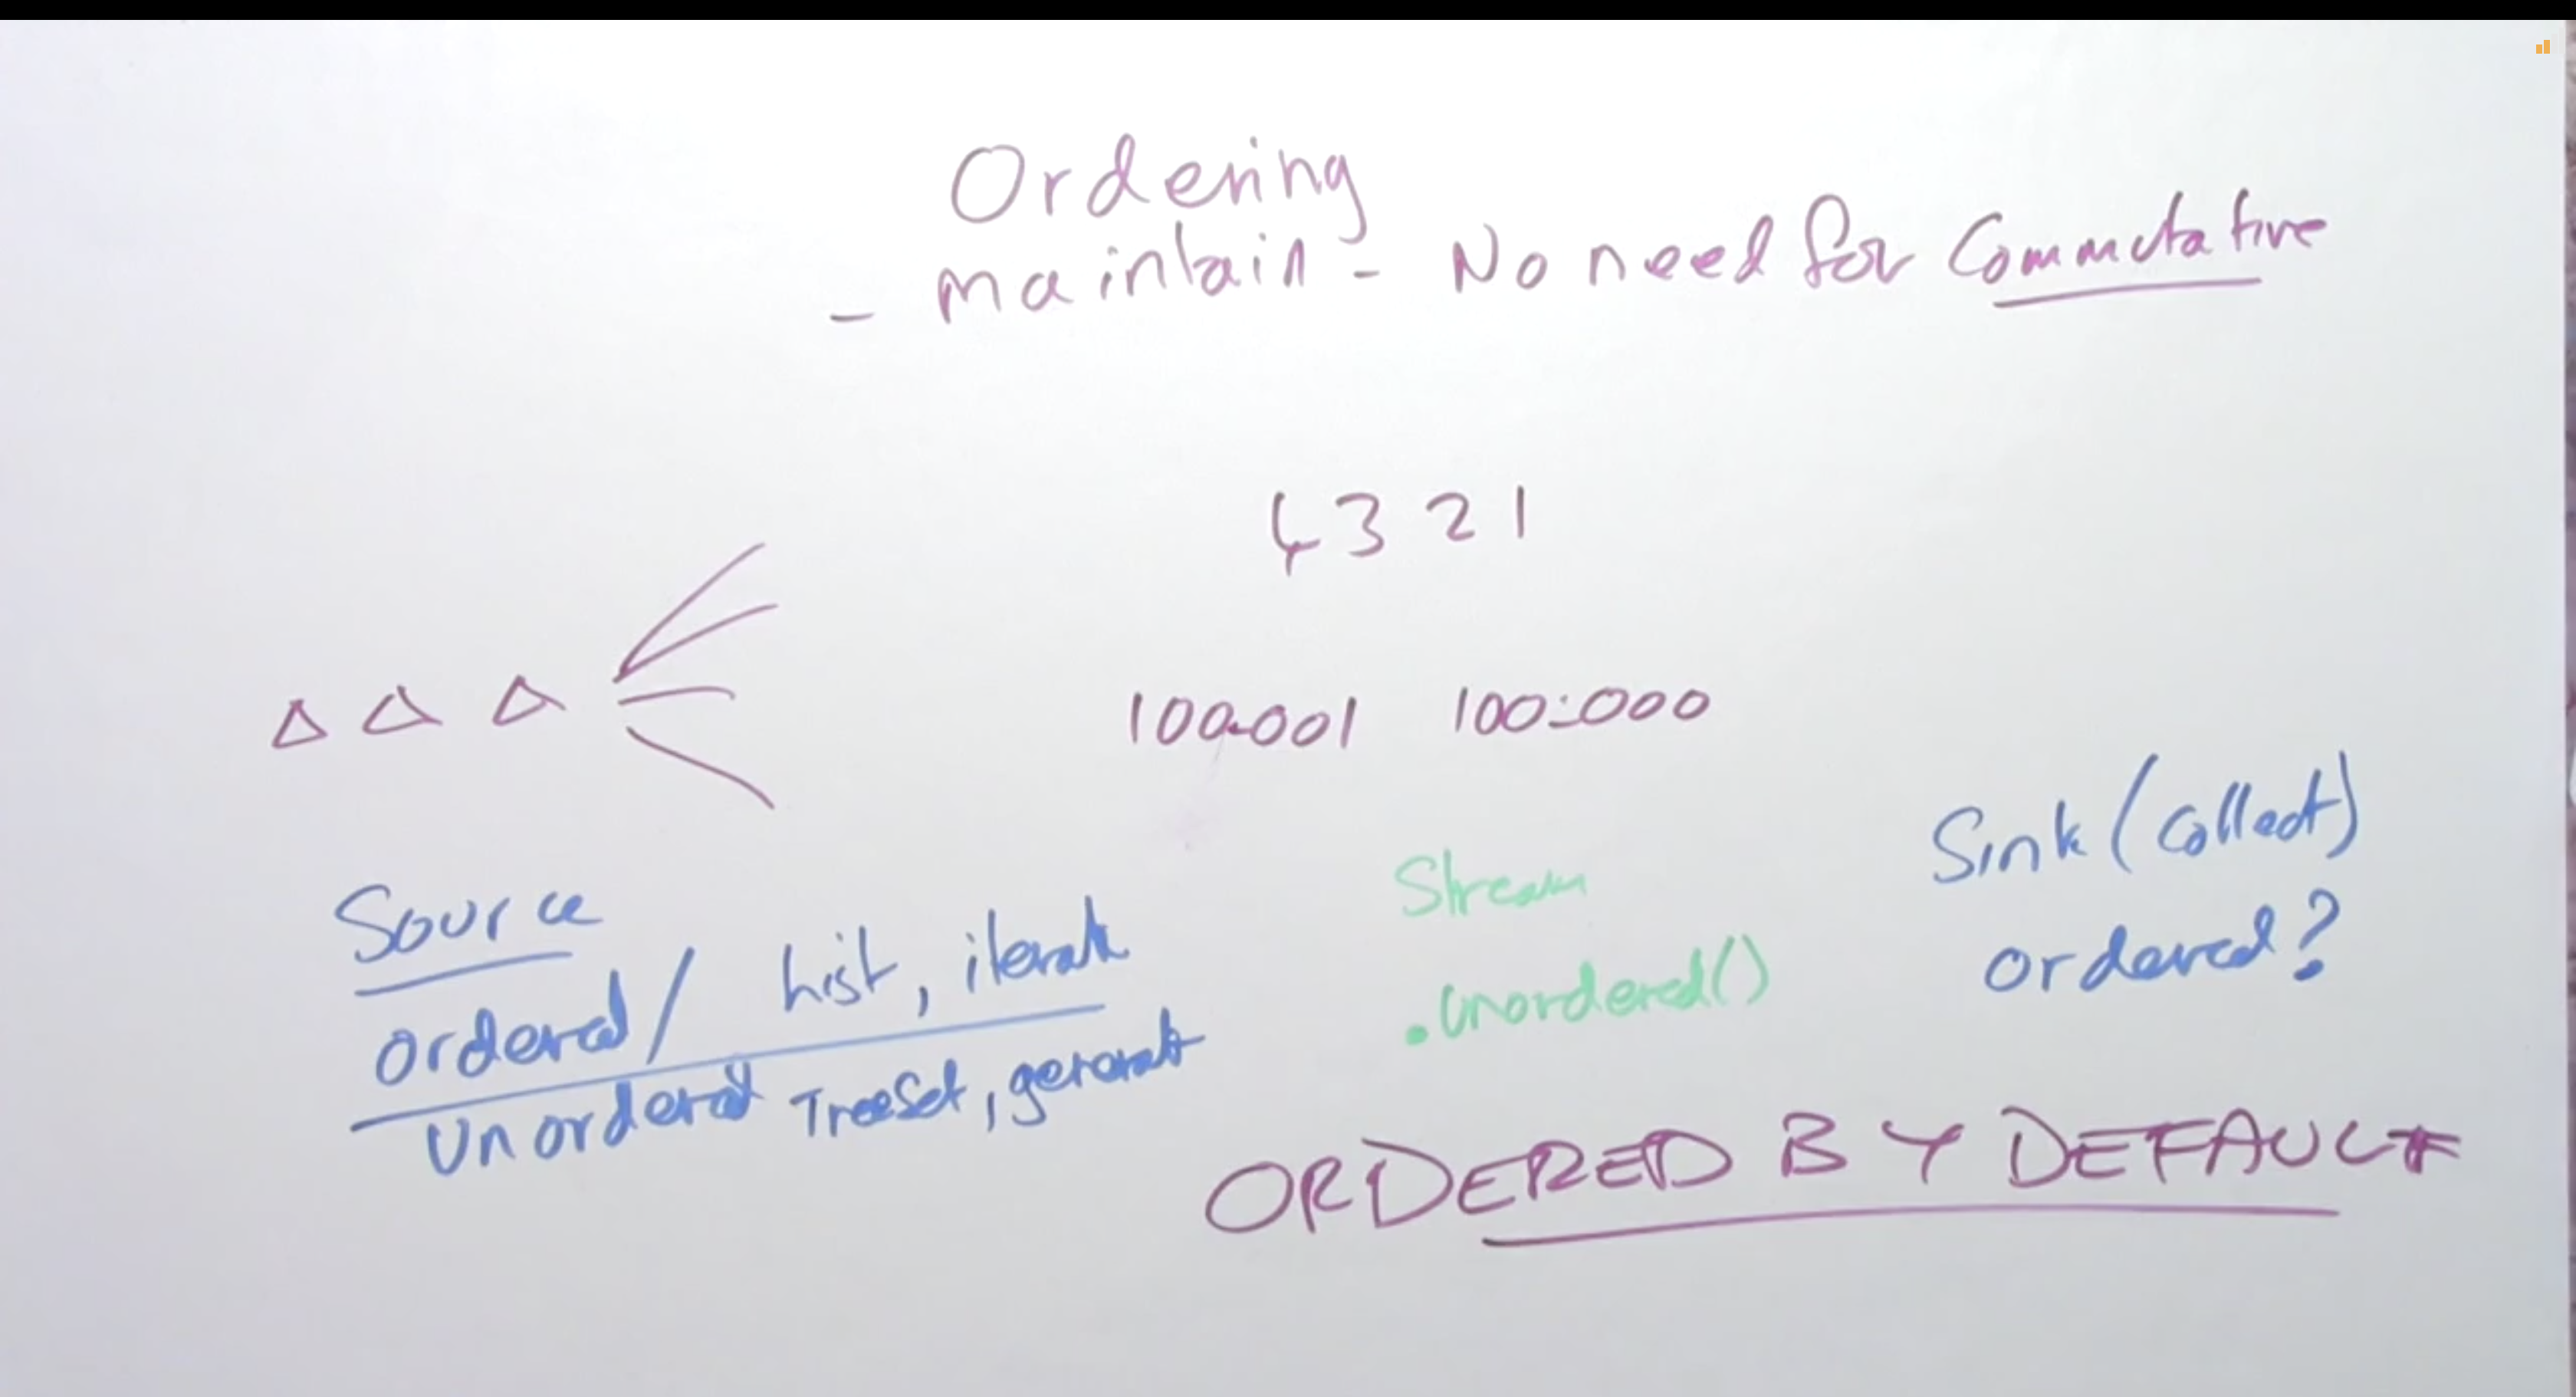 Ordering
- maintain - No need for Commutative
4 3 2 1
100.001 100:000
Source
Ordered / List, iterate
Unordered TreeSet, generate
Stream
.unordered()
Sink (Collect)
ordered?
ORDERED BY DEFAULT